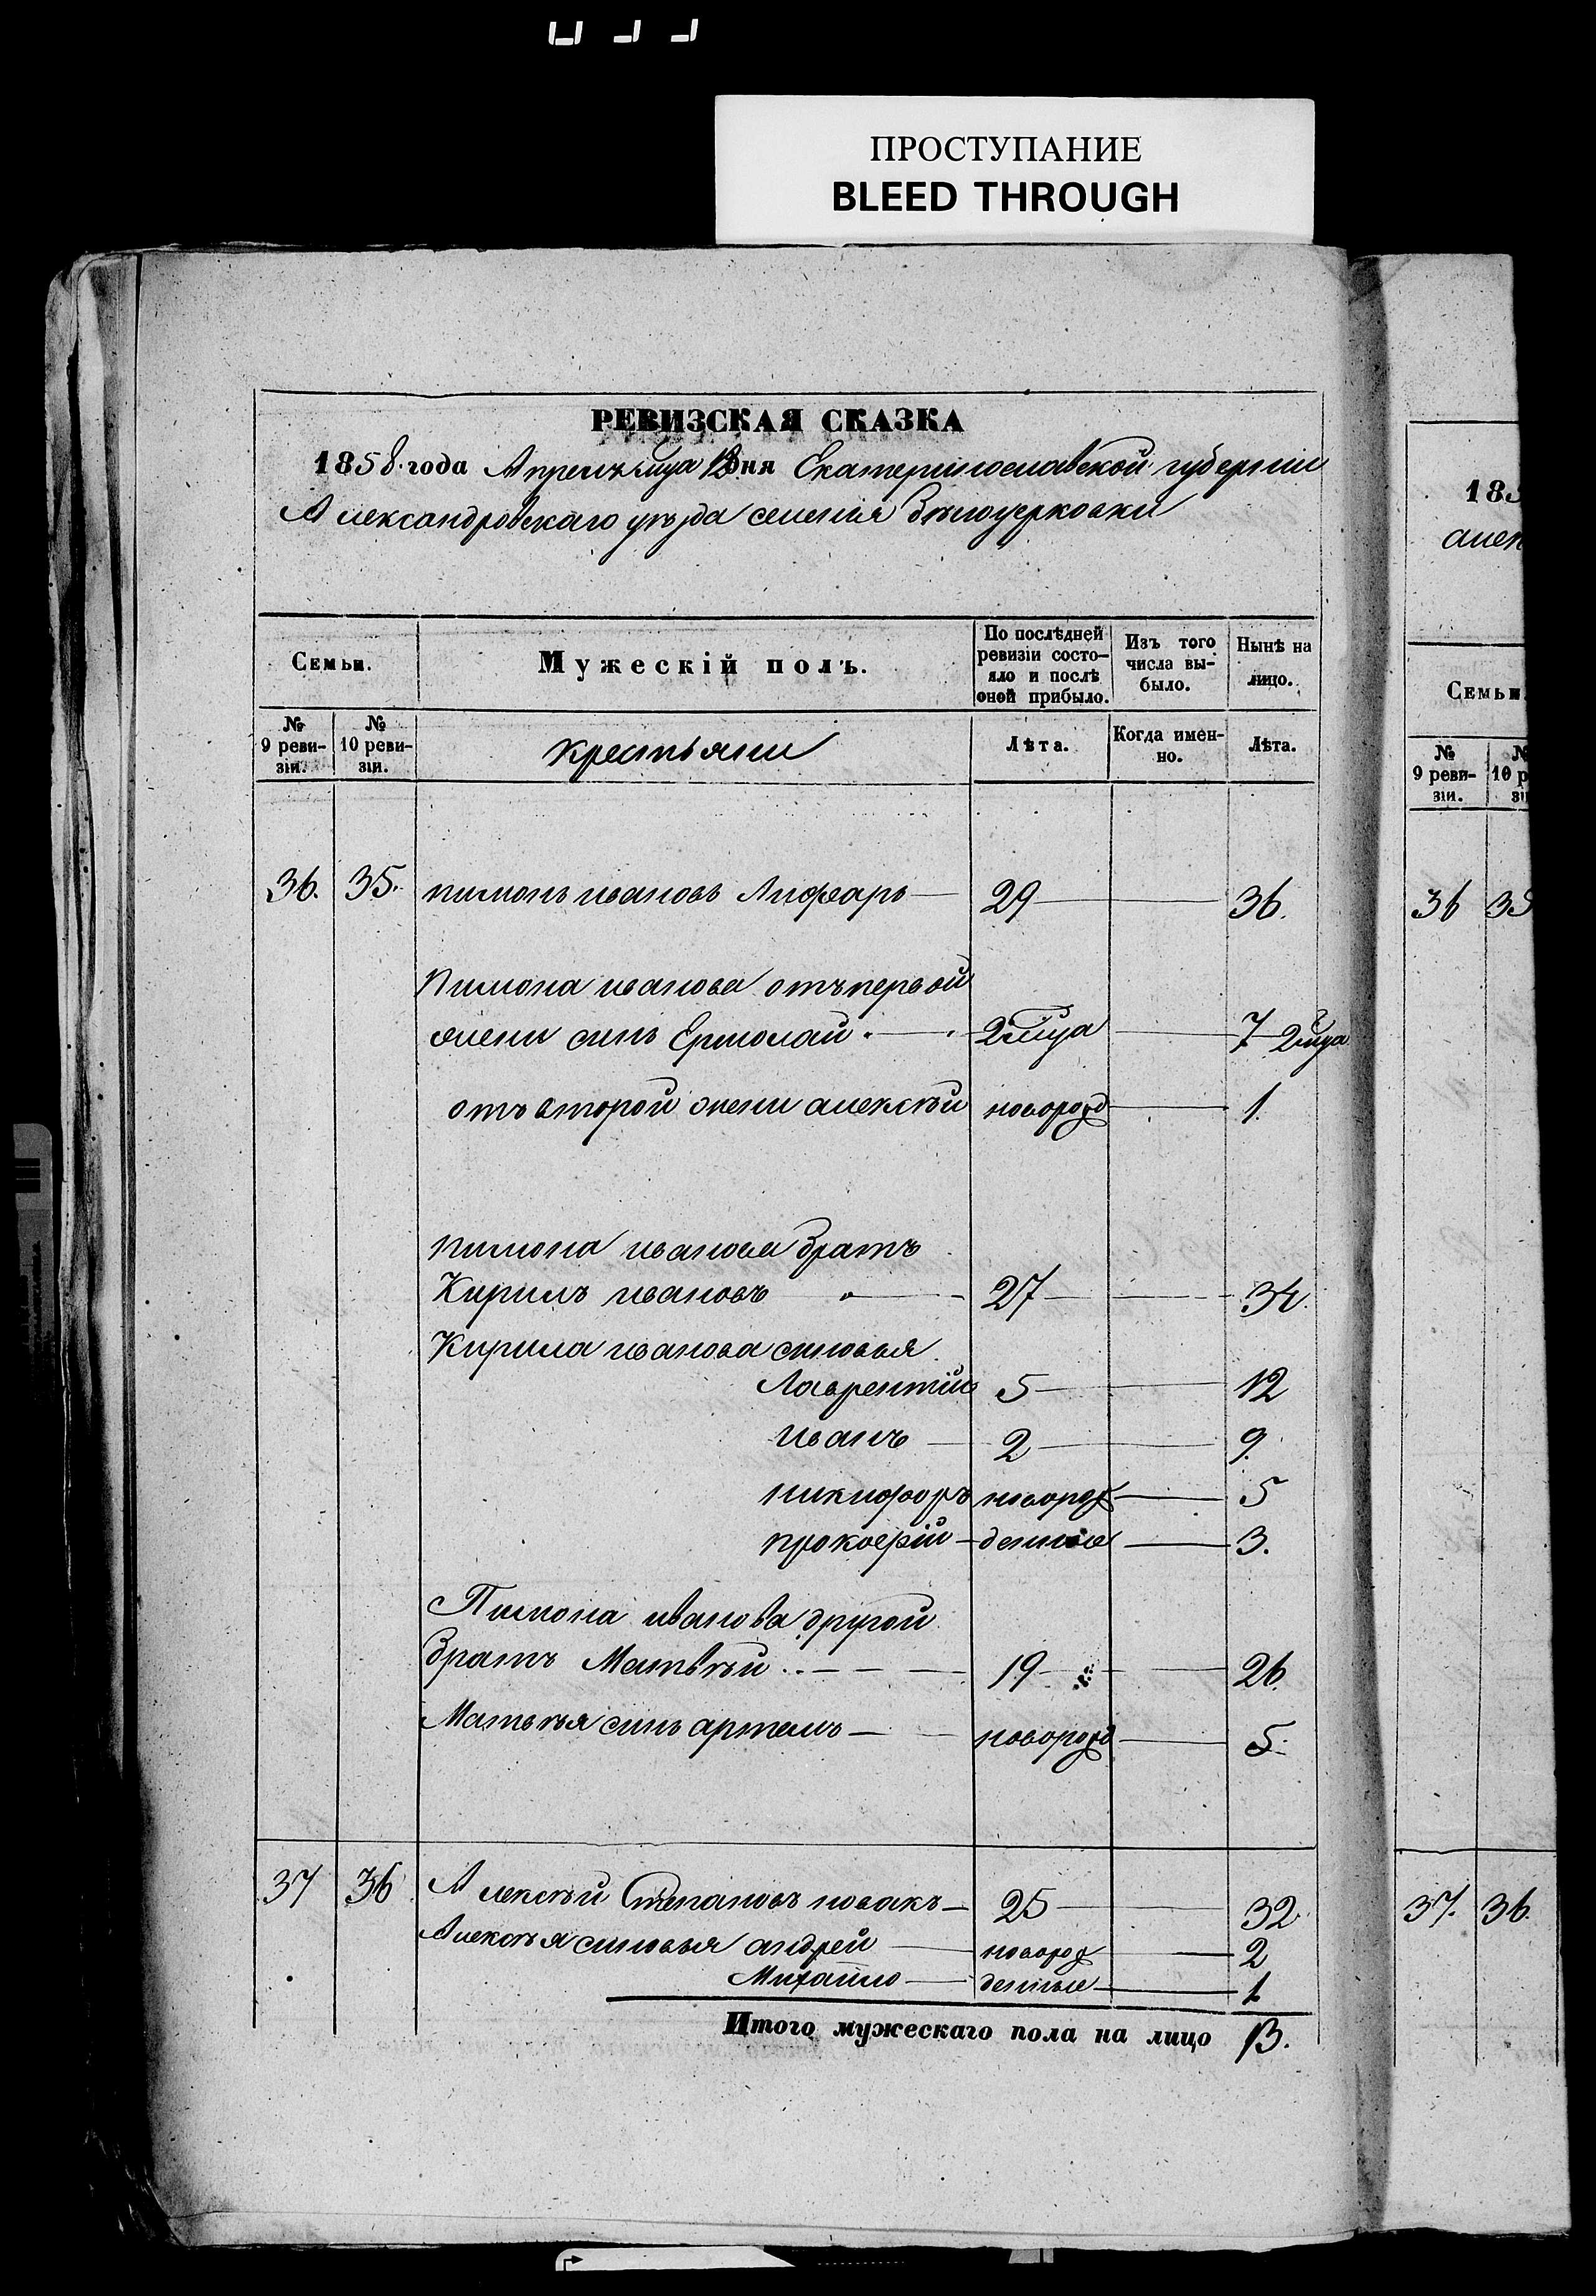 ПРОСТУПАНИЕ
BLEED THROUGH
РЕВИЗСКАЯ СКАЗКА
1858 года Апреля мца 12 дня Екатеринославской губернии
Александровскаго уѣзда селения Бѣлоцерковки
Семьи. Мужескій полъ. По послѣдней ревизіи состояло и послѣ оной прибыло. Изъ того числа выбыло. Нынѣ на лицо.
№ 9 ревизіи. № 10 ревизіи. Крестьяни Лѣта. Когда именно. Лѣта.
36. 35. пимонъ ивановъ 29 36.
Пимона иванова отъ первой
жени синъ Ермолай 2 мца 7 2 мца
отъ второй жени алексѣй новорожд 1.
пимона иванова братъ
Кирилъ ивановъ 27 34.
Кирила иванова синовья
Лаврентий 5 12
иванъ 2 9.
никифоръ новорож 5
прокофій денние 3.
Пимона иванова другой
братъ Матвѣй 19 26.
Матвѣя синъ артемъ новорожд 5.
37 36 Алексѣй Степановъ новакъ 25 32.
Алексѣя синовья андрей новорож 2
Михайло денные 1
Итого мужескаго пола на лицо 13.
185
алек
Семьи.
№ 9 ревизіи. № 10 р зі
36 35
37. 36.